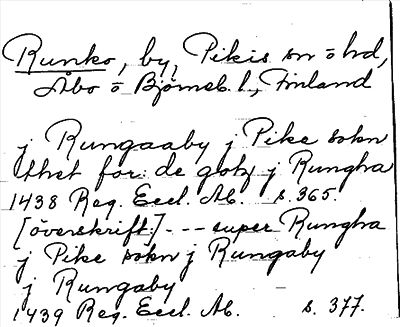 Runko, by, Pikis sn o hd,
Åbo o Björneb. l., Finland
j Rungaaby j Pike sokn
thet for: de godz j Rungha
1438 Reg. Eccl. Ab. s. 365.
[överskrift:] --- super Rungha
j Pike sokn j Rungaby
j Rungaby
1439 Reg. Eccl. Ab. s. 377.